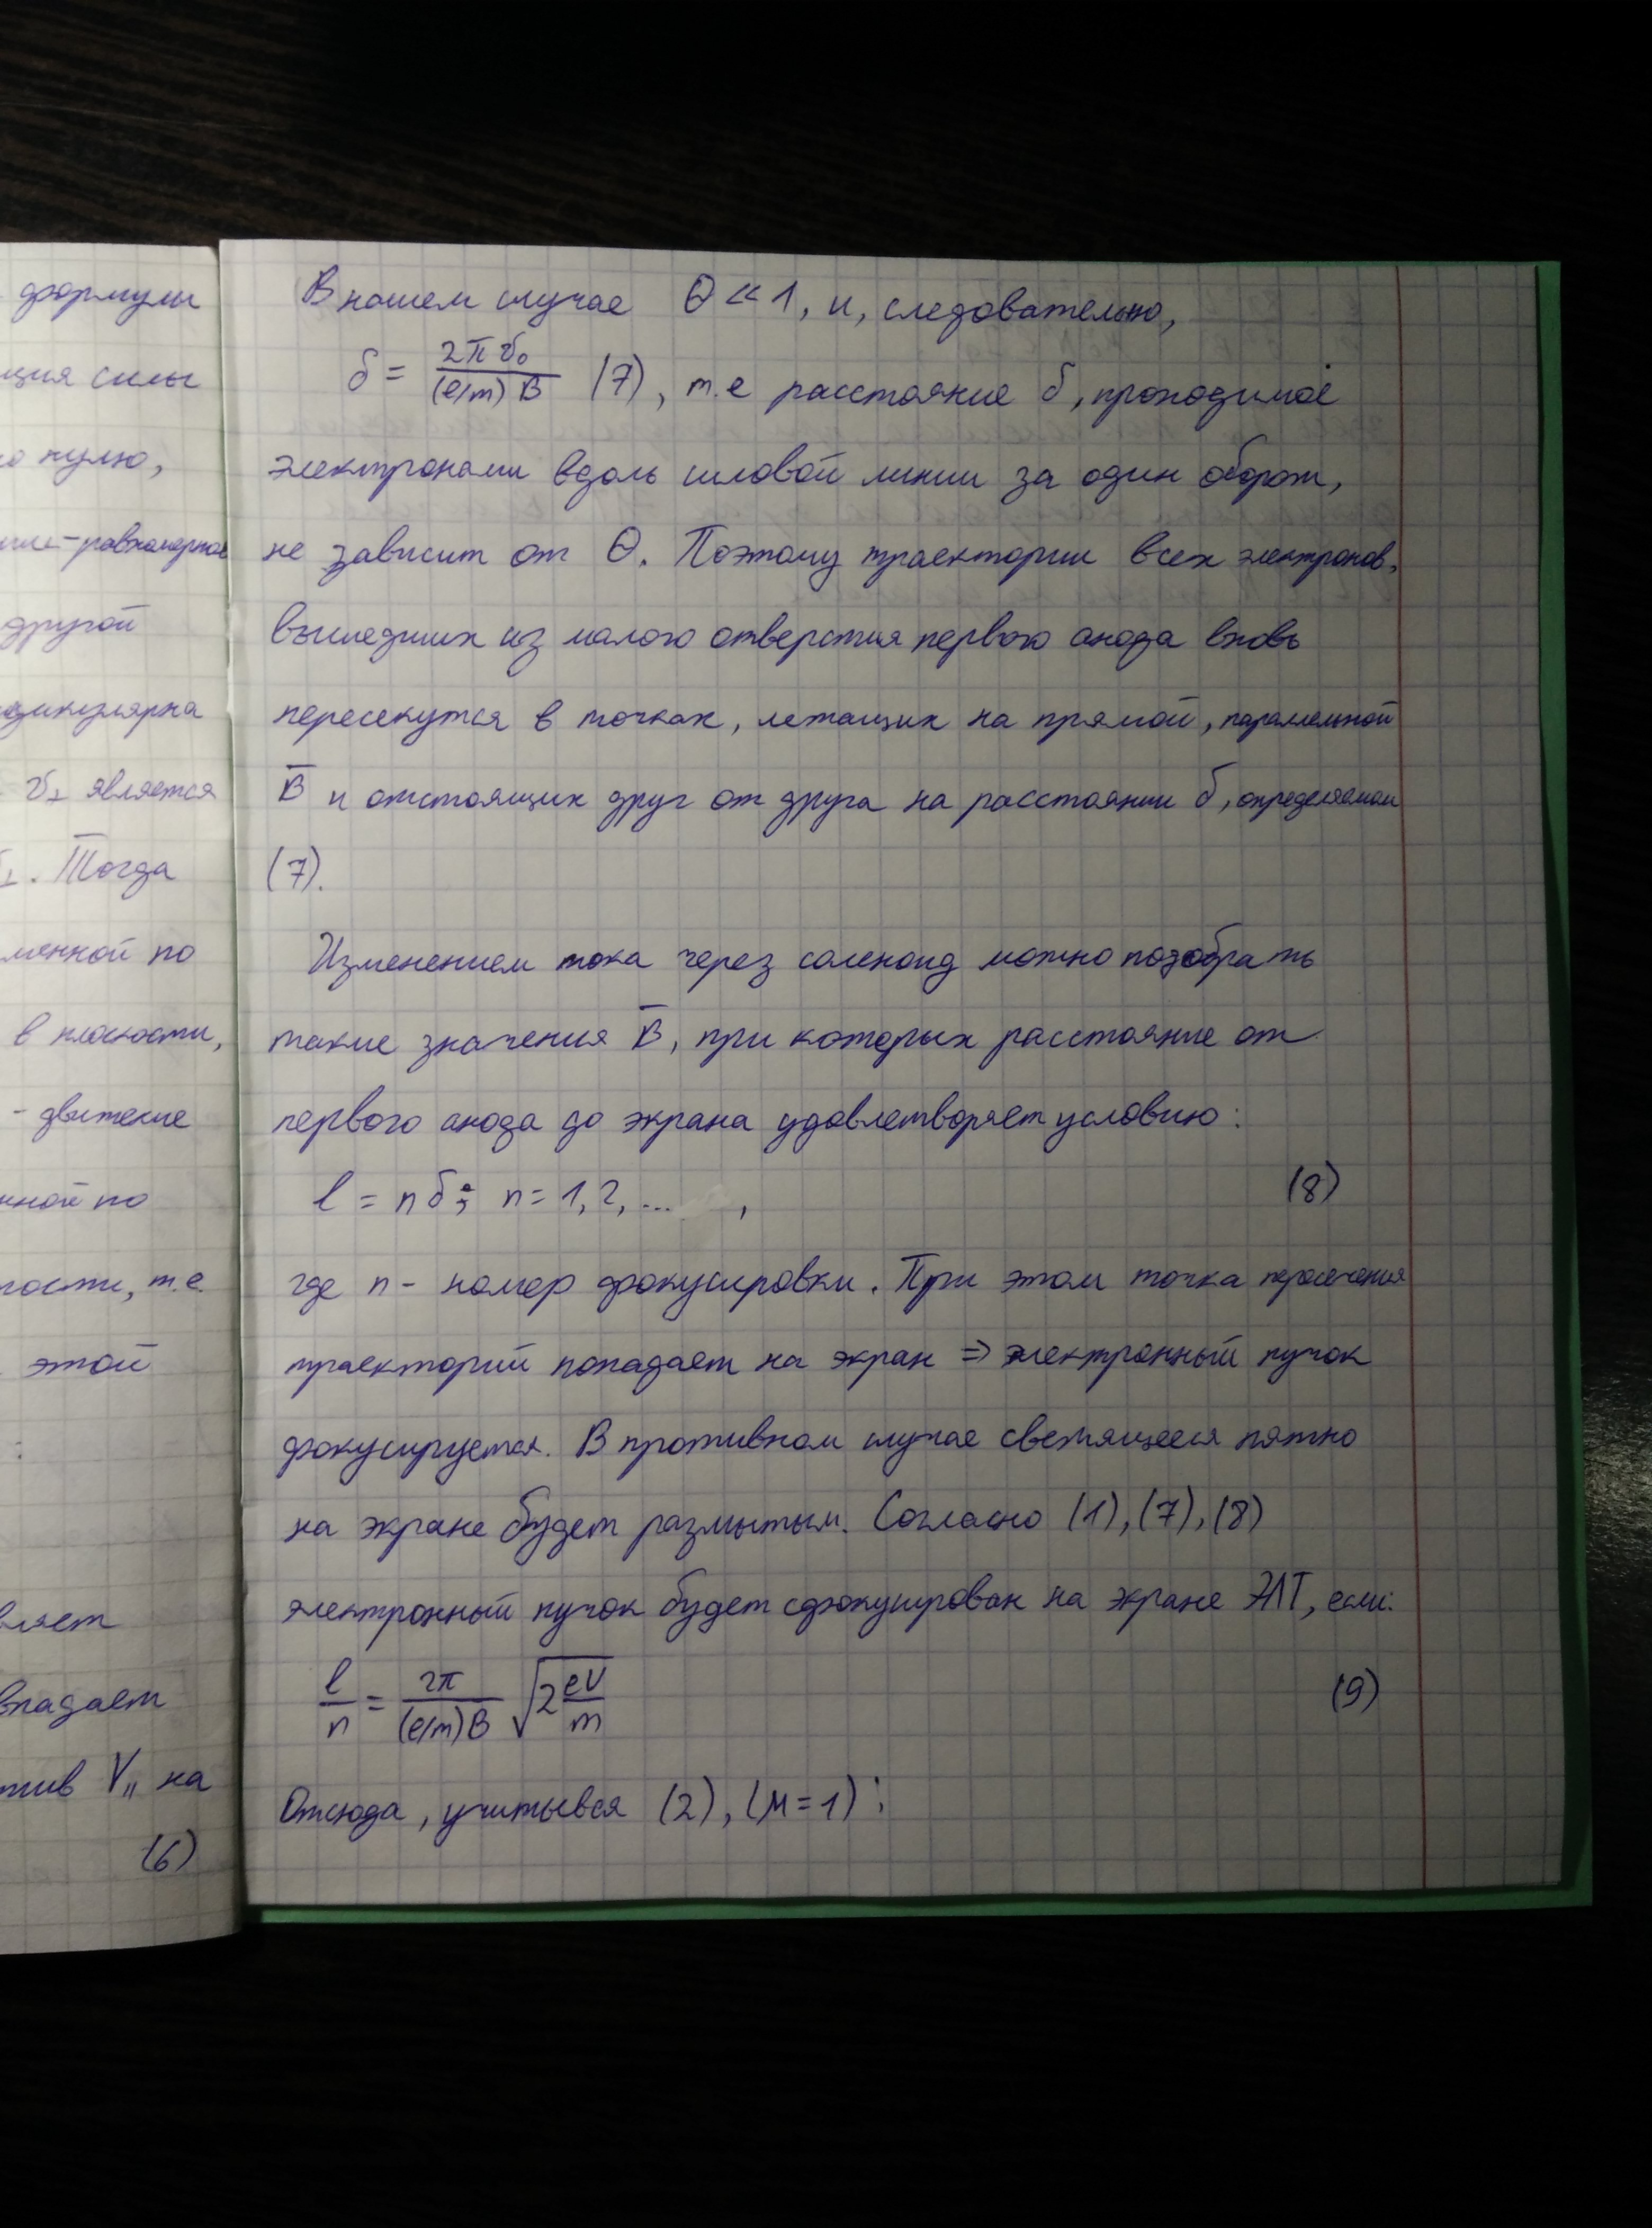 формулы
ция силы
о нулю,
другой
v⊥ является
⊥. Тогда
менной по
в плоскости,
- движение
нной по
ности, т.е.
этой
ляет
впадает
тив V|| на
(6)
В нашем случае Θ << 1, и, следовательно,
δ = 2πv₀/(e/m)B (7), т.е расстояние δ, проходимое
электронами вдоль силовой линии за один оборот,
не зависит от Θ. Поэтому траектории всех электронов,
вышедших из малого отверстия первого анода вновь
пересекутся в точках, лежащих на прямой, параллельной
B̅ и отстоящих друг от друга на расстоянии δ, определяемом
(7).
Изменением тока через соленоид можно подобрать
такие значения B̅, при которых расстояние от
первого анода до экрана удовлетворяет условию:
l = nδ; n = 1, 2, ... , (8)
где n - номер фокусировки. При этом точка пересечения
траекторий попадает на экран ⇒ электронный пучок
фокусируется. В противном случае светящееся пятно
на экране будет размытым. Согласно (1), (7), (8)
электронный пучок будет сфокусирован на экране ЭЛТ, если:
l/n = 2π/(e/m)B √(2 eU/m) (9)
Отсюда, учитывая (2), (μ = 1):